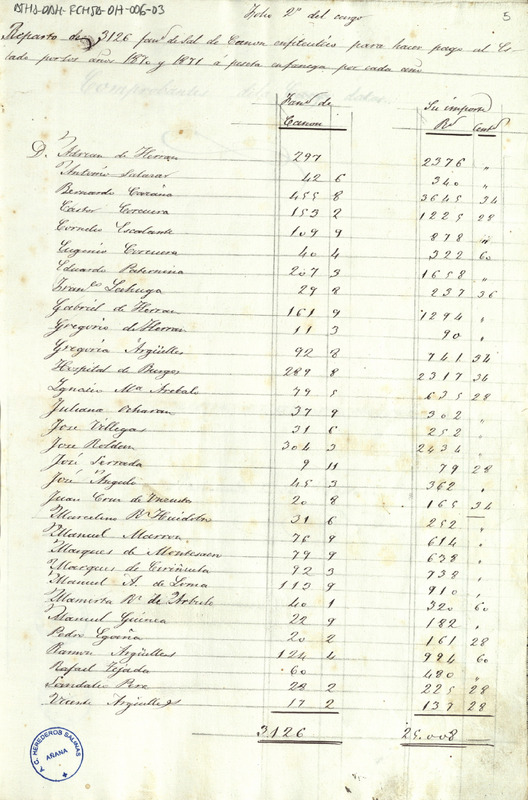 ATHA-DAH-FCHSA-DH-006-03
5
Folio 2º del cargo
Reparto de 3126 fanˢ de Sal de Canon enfiteutico para hacer pago al Es-
tado por los años 1870 y 1871 a peseta en fanega por cada año
Comprobantes
Fanˢ de Canon
Su importe
Rˢ Centˢ
D. Adrian de Herran 297 2376 "
Antonio Salazar 42 6 340 "
Bernardo 455 8 3645 34
Castor Corcuera 153 2 1225 28
Cornelio Escalante 109 9 878 "
Eugenio Corcuera 40 4 322 60
Eduardo Paternina 207 3 1658 "
Franᶜᵒ 29 8 237 36
Gabriel de Herran 161 9 1294 "
Gregorio de Herran 11 3 90 "
Gregoria Argüelles 92 8 741 34
Hospital de Burgos 289 8 2317 34
Ignacio Mª 79 5 635 28
Juliana Ocharan 37 9 302 "
Jose Villegas 31 6 252 "
Jose Roldan 304 3 2434 "
José Serrada 9 11 79 28
José Angulo 45 3 362 "
Juan Cruz de 20 8 165 34
Marcelino Rˢ Huidobro 31 6 252 "
Manuel Marron 76 9 614 "
Marques de Montesaen 79 9 638 "
Marques de Ciriñuela 92 3 738 "
Manuel A. de Loma 113 9 910 "
Mamerta Rˢ de Arbulo 40 1 320 60
Manuel Guinea 22 9 182 "
Pedro Egaña 20 2 161 28
Ramon Argüelles 124 4 994 60
Rafael Tejada 60 480 "
Sandalio 28 2 225 28
Vicente Argüelles 17 2 137 28
3126 25.008
A.C. HEREDEROS SALINAS
AÑANA